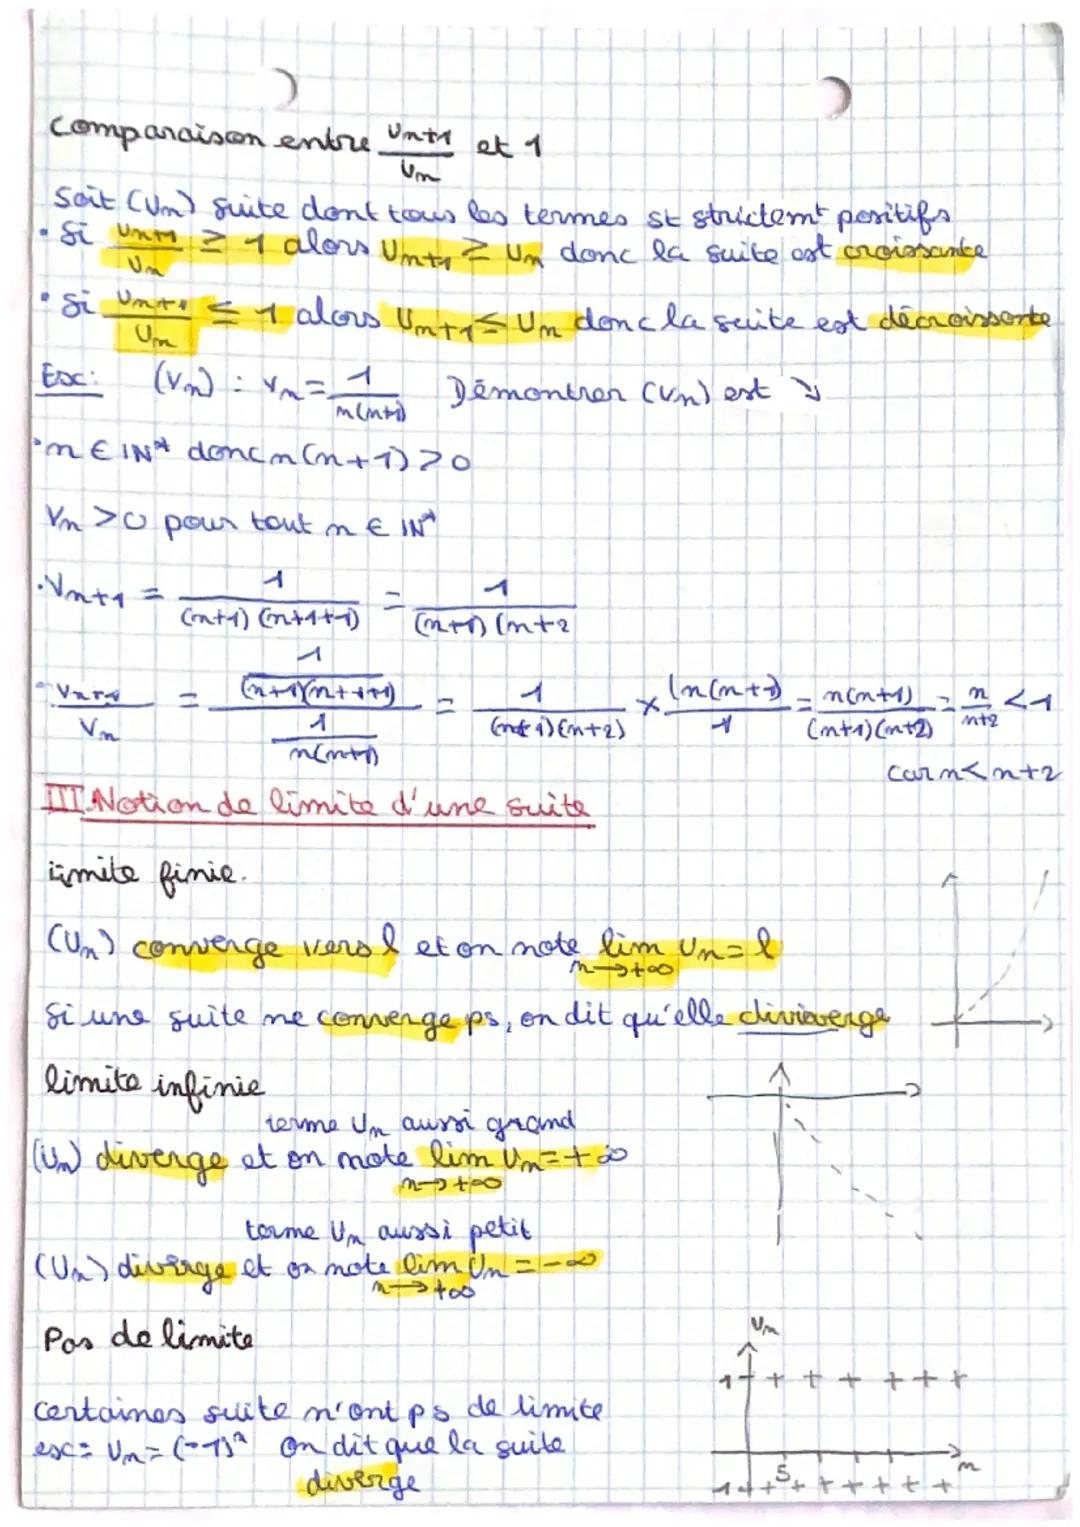 Comparaison entre Un+1/Un et 1
Soit (Un) suite dont tous les termes st strictemt positifs
• Si Un+1/Un ≥ 1 alors Un+1 ≥ Un donc la suite est croissante
• Si Un+1/Un ≤ 1 alors Un+1 ≤ Un donc la suite est décroissante
Ex: (Vn) : Vn = 1/n(n+1) Démontrer (Vn) est ↘
• n ∈ IN* donc n(n+1) > 0
Vn > 0 pour tout n ∈ IN*
• Vn+1 = 1/(n+1)(n+1+1) = 1/(n+1)(n+2
• Vn+1/Vn = 1/(n+1)(n+1+1) / 1/n(n+1) = 1/(n+1)(n+2) × (n(n+1)/1 = n(n+1)/(n+1)(n+2) = n/n+2 < 1
car n < n+2
III. Notion de limite d'une suite
limite finie.
(Un) converge vers l et on note lim Un = l
n→+∞
Si une suite ne converge ps, on dit qu'elle diviaverge
limite infinie
terme Un aussi grand
(Un) diverge et on note lim Un = +∞
n→+∞
terme Un aussi petit
(Un) diverge et on note lim Un = -∞
n→+∞
Pas de limite
Un
1
certaines suite n'ont ps de limite
ex: Un = (-1)ⁿ On dit que la suite
diverge
5
n
-1